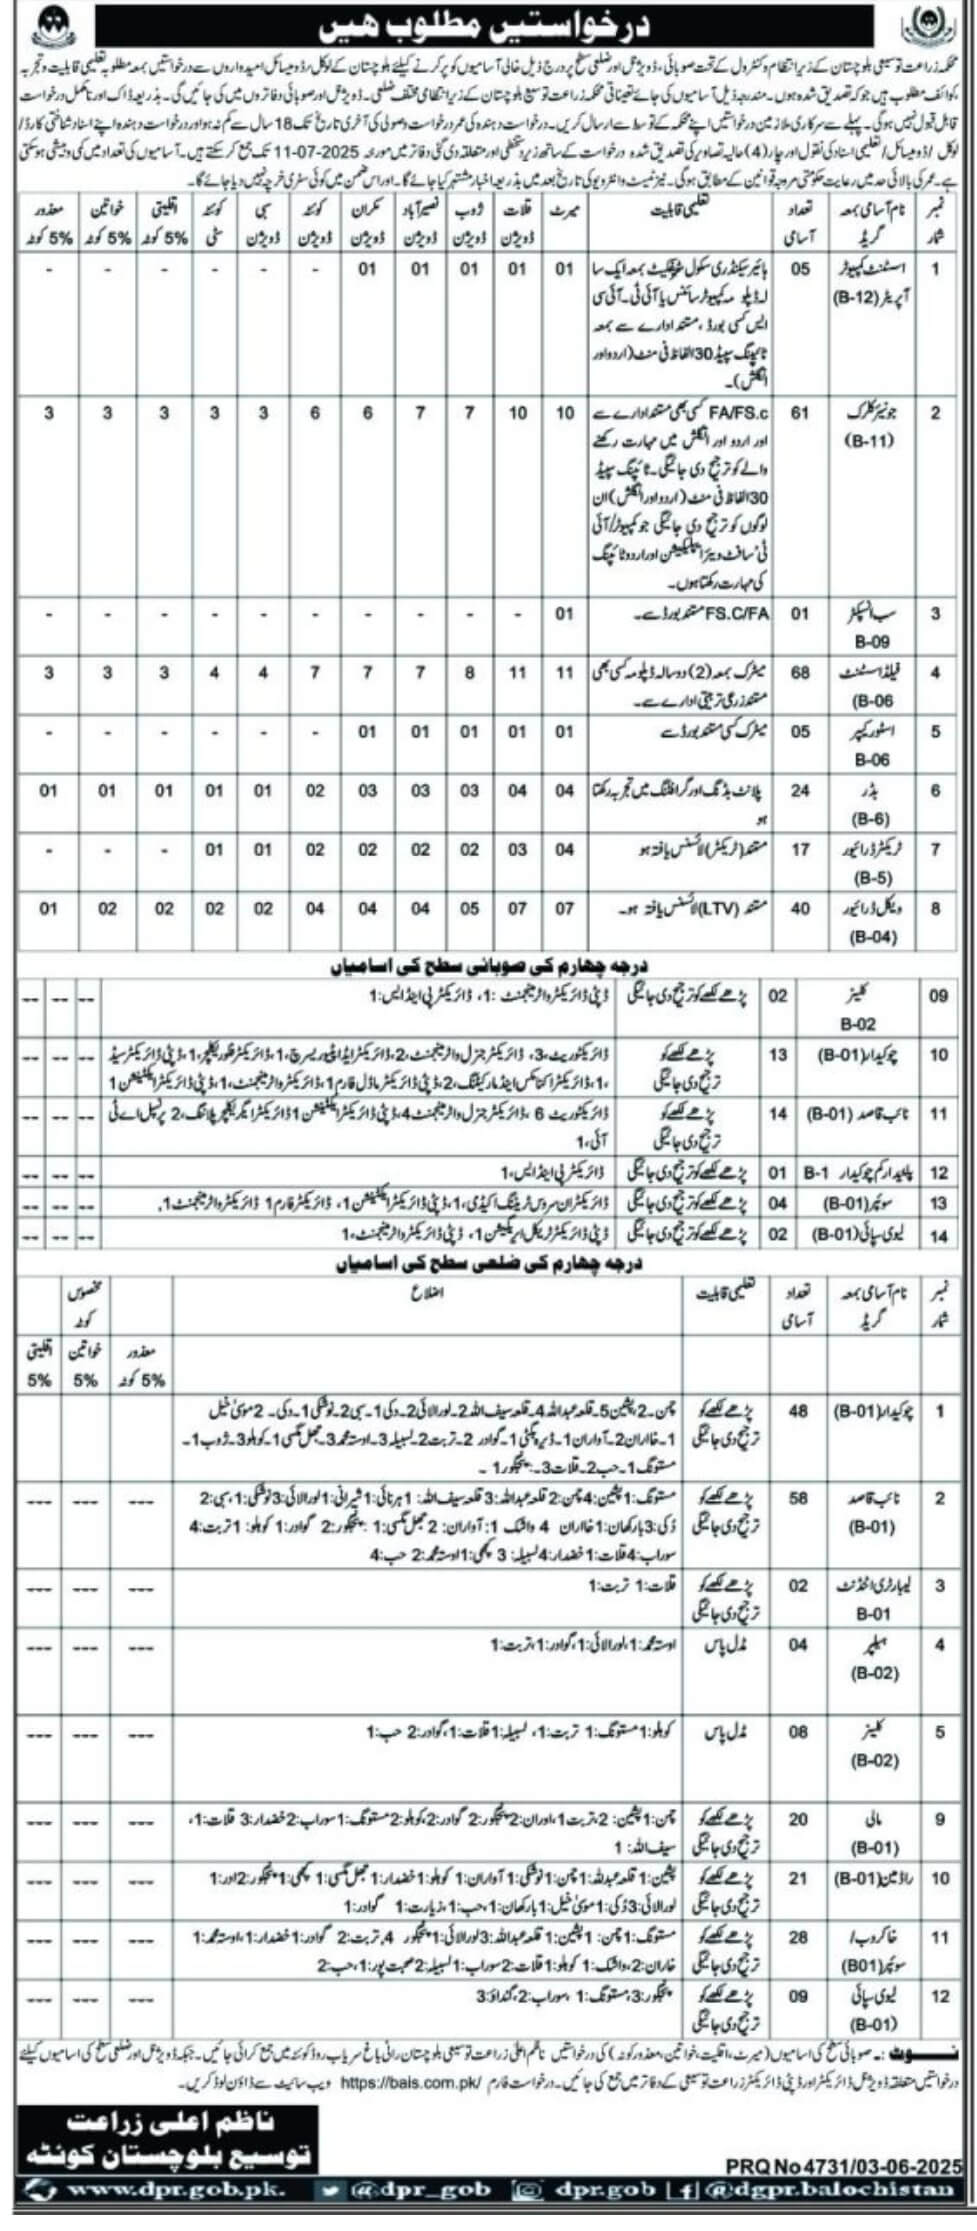 درخواستیں مطلوب ھیں
محکمہ زراعت توسیعی بلوچستان کے زیر انتظام و کنٹرول کے تحت صوبائی، ڈویژنل اور ضلعی سطح پر درج ذیل خالی آسامیوں کو پر کرنے کیلئے بلوچستان کے لوکل/ ڈومیسائل امیدواروں سے درخواستیں بمعہ مطلوبہ تعلیمی قابلیت و تجربہ
کوائف مطلوب ہیں جو کہ تصدیق شدہ ہوں۔ مندرجہ ذیل آسامیوں کی جائے تعیناتی محکمہ زراعت توسیع بلوچستان کے زیر انتظامی مختلف ضلعی۔ ڈویژنل اور صوبائی دفاتروں میں کی جائیں گی۔ بذریعہ ڈاک اور نامکمل درخواست
قابل قبول نہیں ہوگی۔ پہلے سے سرکاری ملازمین درخواستیں اپنے محکمہ کے توسط سے ارسال کریں۔ درخواست دہندہ کی عمر درخواست وصولی کی آخری تاریخ تک 18 سال سے کم نہ ہو اور درخواست دہندہ اپنے اسناد شناختی کارڈ/
لوکل / ڈومیسائل / تعلیمی اسناد کی نقول اور چار (4) حالیہ تصاویر کی تصدیق شدہ درخواست کے ساتھ زیر دستخطی اور متعلقہ دی گئی دفاتر میں مورخہ 11-07-2025 تک جمع کر سکتے ہیں۔ آسامیوں کی تعداد میں کمی و بیشی ہو سکتی
ہے۔ عمر کی بالائی حد میں رعایت حکومتی مروجہ قوانین کے مطابق ہوگی۔ نیز ٹیسٹ و انٹرویو کی تاریخ بعد میں بذریعہ اخبار مشتہر کیا جائے گا۔ اور اس ضمن میں کوئی سفری خرچہ نہیں دیا جائے گا۔
نمبر شمار نام آسامی بمعہ گریڈ تعداد آسامی تعلیمی قابلیت میرٹ قلات ڈویژن ژوب ڈویژن نصیر آباد ڈویژن مکران ڈویژن کوئٹہ ڈویژن سبی ڈویژن کوئٹہ سٹی اقلیتی 5% کوٹہ خواتین 5% کوٹہ معذور 5% کوٹہ
1 اسسٹنٹ کمپیوٹر آپریٹر (B-12) 05 ہائیر سیکنڈری سکول سرٹیفکیٹ بمعہ ایک سالہ ڈپلومہ کمپیوٹر سائنس یا آئی ٹی۔ آئی سی ایس کسی بورڈ، مستند ادارے سے بمعہ ٹائپنگ سپیڈ 30 الفاظ فی منٹ (اردو اور انگلش)۔ 01 01 01 01 01 - - - - - -
2 جونیئر کلرک (B-11) 61 FA/FS.c کسی بھی مستند ادارے سے اور اردو اور انگلش میں مہارت رکھنے والے کو ترجیح دی جائیگی۔ ٹائپنگ سپیڈ 30 الفاظ فی منٹ (اردو اور انگلش) ان لوگوں کو ترجیح دی جائیگی جو کمپیوٹر/ آئی ٹی سافٹ ویئر اپلیکیشن اور اردو ٹائپنگ کی مہارت رکھتا ہوں۔ 10 10 7 7 6 6 3 3 3 3 3
3 سب انسپکٹر B-09 01 FS.C/FA مستند بورڈ سے۔ 01 - - - - - - - - - -
4 فیلڈ اسسٹنٹ (B-06 68 میٹرک بمعہ (2) دو سالہ ڈپلومہ کسی بھی مستند زرعی تربیتی ادارے سے۔ 11 11 8 7 7 7 4 4 3 3 3
5 اسٹور کیپر B-06 05 میٹرک کسی مستند بورڈ سے 01 01 01 01 01 - - - - - -
6 بڈر (B-6) 24 پلانٹ بڈنگ اور گرافٹنگ میں تجربہ رکھتا ہو 04 04 03 03 03 02 01 01 01 01 01
7 ٹریکٹر ڈرائیور (B-5) 17 مستند (ٹریکٹر) لائسنس یافتہ ہو 04 03 02 02 02 02 01 01 - - -
8 ویکل ڈرائیور (B-04) 40 مستند (LTV) لائسنس یافتہ ہو۔ 07 07 05 04 04 04 02 02 02 02 01
درجہ چہارم کی صوبائی سطح کی اسامیاں
09 کلینر B-02 02 پڑھے لکھے کو ترجیح دی جائیگی ڈپٹی ڈائریکٹر واٹر مینجمنٹ :1، ڈائریکٹر پی اینڈ ایس:1 -- -- --
10 چوکیدار (B-01) 13 پڑھے لکھے کو ترجیح دی جائیگی ڈائریکٹوریٹ 3، ڈائریکٹر جنرل واٹر مینجمنٹ، 2، ڈائریکٹر اڈاپٹیو ریسرچ، 1، ڈائریکٹر فلوریکلچر، 1، ڈپٹی ڈائریکٹر سیڈ
،1، ڈائریکٹر اکنامکس اینڈ مارکیٹنگ، 2، ڈپٹی ڈائریکٹر ماڈل فارم 1، ڈائریکٹر واٹر مینجمنٹ، 1، ڈپٹی ڈائریکٹر ایکسٹینشن 1 -- -- --
11 نائب قاصد (B-01) 14 پڑھے لکھے کو ترجیح دی جائیگی ڈائریکٹوریٹ 6، ڈائریکٹر جنرل واٹر مینجمنٹ 4، ڈپٹی ڈائریکٹر ایکسٹینشن 1 ڈائریکٹر ایگریکلچر پلاننگ، 2 پرنسپل اے ٹی
آئی، 1 -- -- --
12 بیلدار کم چوکیدار B-1 01 پڑھے لکھے کو ترجیح دی جائیگی ڈائریکٹر پی اینڈ ایس، 1 -- -- --
13 سوئپر (B-01) 04 پڑھے لکھے کو ترجیح دی جائیگی ڈائریکٹر ان سروس ٹریننگ اکیڈمی، 1، ڈپٹی ڈائریکٹر ایکسٹینشن 1، ڈائریکٹر فارم 1 ڈائریکٹر واٹر مینجمنٹ 1، -- -- --
14 لیوی سپائی (B-01) 02 پڑھے لکھے کو ترجیح دی جائیگی ڈپٹی ڈائریکٹر ٹریکل ایریگیشن 1، ڈپٹی ڈائریکٹر واٹر مینجمنٹ، 1 -- -- --
درجہ چہارم کی ضلعی سطح کی اسامیاں
نمبر شمار نام آسامی بمعہ گریڈ تعداد آسامی تعلیمی قابلیت اضلاع مخصوص کوٹہ
معذور 5% کوٹہ خواتین 5% اقلیتی 5%
1 چوکیدار (B-01) 48 پڑھے لکھے کو ترجیح دی جائیگی چمن۔2، پشین 5۔ قلعہ عبداللہ 4۔ قلعہ سیف اللہ 2۔ لورالائی 2۔ دکی 1۔ سبی 2۔ نوشکی 1۔ دکی۔ 2 موسیٰ خیل
1۔ خاران 2۔ آواران 1۔ ڈیرہ بگٹی 1۔ گوادر 2۔ تربت 2۔ لسبیلہ 3۔ اوستہ محمد 3۔ جھل مگسی 1۔ کوہلو 3۔ ژوب 1۔
مستونگ 1۔ حب 2۔ قلات 3۔ پنجگور 1۔
2 نائب قاصد (B-01) 58 پڑھے لکھے کو ترجیح دی جائیگی مستونگ:1 پشین:4 چمن:2 قلعہ عبداللہ:3 قلعہ سیف اللہ:1 ہرنائی:1 شیرانی:1 لورالائی:3 نوشکی:1، سبی:2
دکی:3 بارکھان:1 خاران 4 واشک 1: آواران: 2 جھل مگسی:1 پنجگور:2 گوادر:1 کوہلو: 1 تربت:4
سوراب:4 قلات:1 خضدار:4 لسبیلہ: 3 کچھی:1 اوستہ محمد:2 حب:4 --- --- ---
3 لیبارٹری اٹنڈنٹ B-01 02 پڑھے لکھے کو ترجیح دی جائیگی قلات:1 تربت:1 --- --- ---
4 ہیلپر (B-02) 04 مڈل پاس اوستہ محمد:1، لورالائی:1، گوادر:1، تربت:1 --- --- ---
5 کلینر (B-02) 08 مڈل پاس کوہلو:1 مستونگ:1 تربت:1، لسبیلہ:1 قلات:1، گوادر:2 حب:1 --- --- ---
9 مالی (B-01) 20 پڑھے لکھے کو ترجیح دی جائیگی چمن:1 پشین:2، تربت 1، اوران:2 پنجگور:2 گوادر:2، کوہلو:2 مستونگ:1 سوراب:2 خضدار:3 قلات:1،
سیف اللہ:1 --- --- ---
10 راڈ مین (B-01) 21 پڑھے لکھے کو ترجیح دی جائیگی پشین:1 قلعہ عبداللہ:1 چمن:1 نوشکی:1 آواران:1 کوہلو:1 خضدار:1 جھل مگسی:1 کچھی:1 پنجگور:2
لورالائی:3 دکی:1 موسیٰ خیل:1 بارکھان:1، حب:1، زیارت:1 گوادر:1 --- --- ---
11 خاکروب/ سوئپر (B01) 28 پڑھے لکھے کو ترجیح دی جائیگی مستونگ:1 چمن:1 پشین:1 قلعہ عبداللہ:3 لورالائی:1 پنجگور 4، تربت:2 گوادر:1 خضدار:1، اوستہ محمد:1
خاران:2، واشک:1 کوہلو:1 قلات:2 سوراب:1 لسبیلہ:2 صحبت پور:1، حب:2 --- --- ---
12 لیوی سپائی (B-01) 09 پڑھے لکھے کو ترجیح دی جائیگی پنجگور:3، مستونگ:1 سوراب:2، گنداؤ:3 --- --- ---
نوٹ :۔ صوبائی سطح کی اسامیوں (میرٹ، اقلیت، خواتین، معذور کوٹہ) کی درخواستیں ناظم اعلیٰ زراعت توسیعی بلوچستان رانی باغ سریاب روڈ کوئٹہ میں جمع کرائی جائیں۔ جبکہ ڈویژنل اور ضلعی سطح کی اسامیوں کیلئے
درخواستیں متعلقہ ڈویژنل ڈائریکٹر اور ڈپٹی ڈائریکٹر زراعت توسیعی کے دفاتر میں جمع کی جائیں۔ درخواست فارم https://bals.com.pk/ ویب سائیٹ سے ڈاؤن لوڈ کریں۔
ناظم اعلی زراعت
توسیع بلوچستان کوئٹہ
PRQ No 4731/03-06-2025
www.dpr.gob.pk. @dpr_gob dpr.gob @dgpr.balochistan